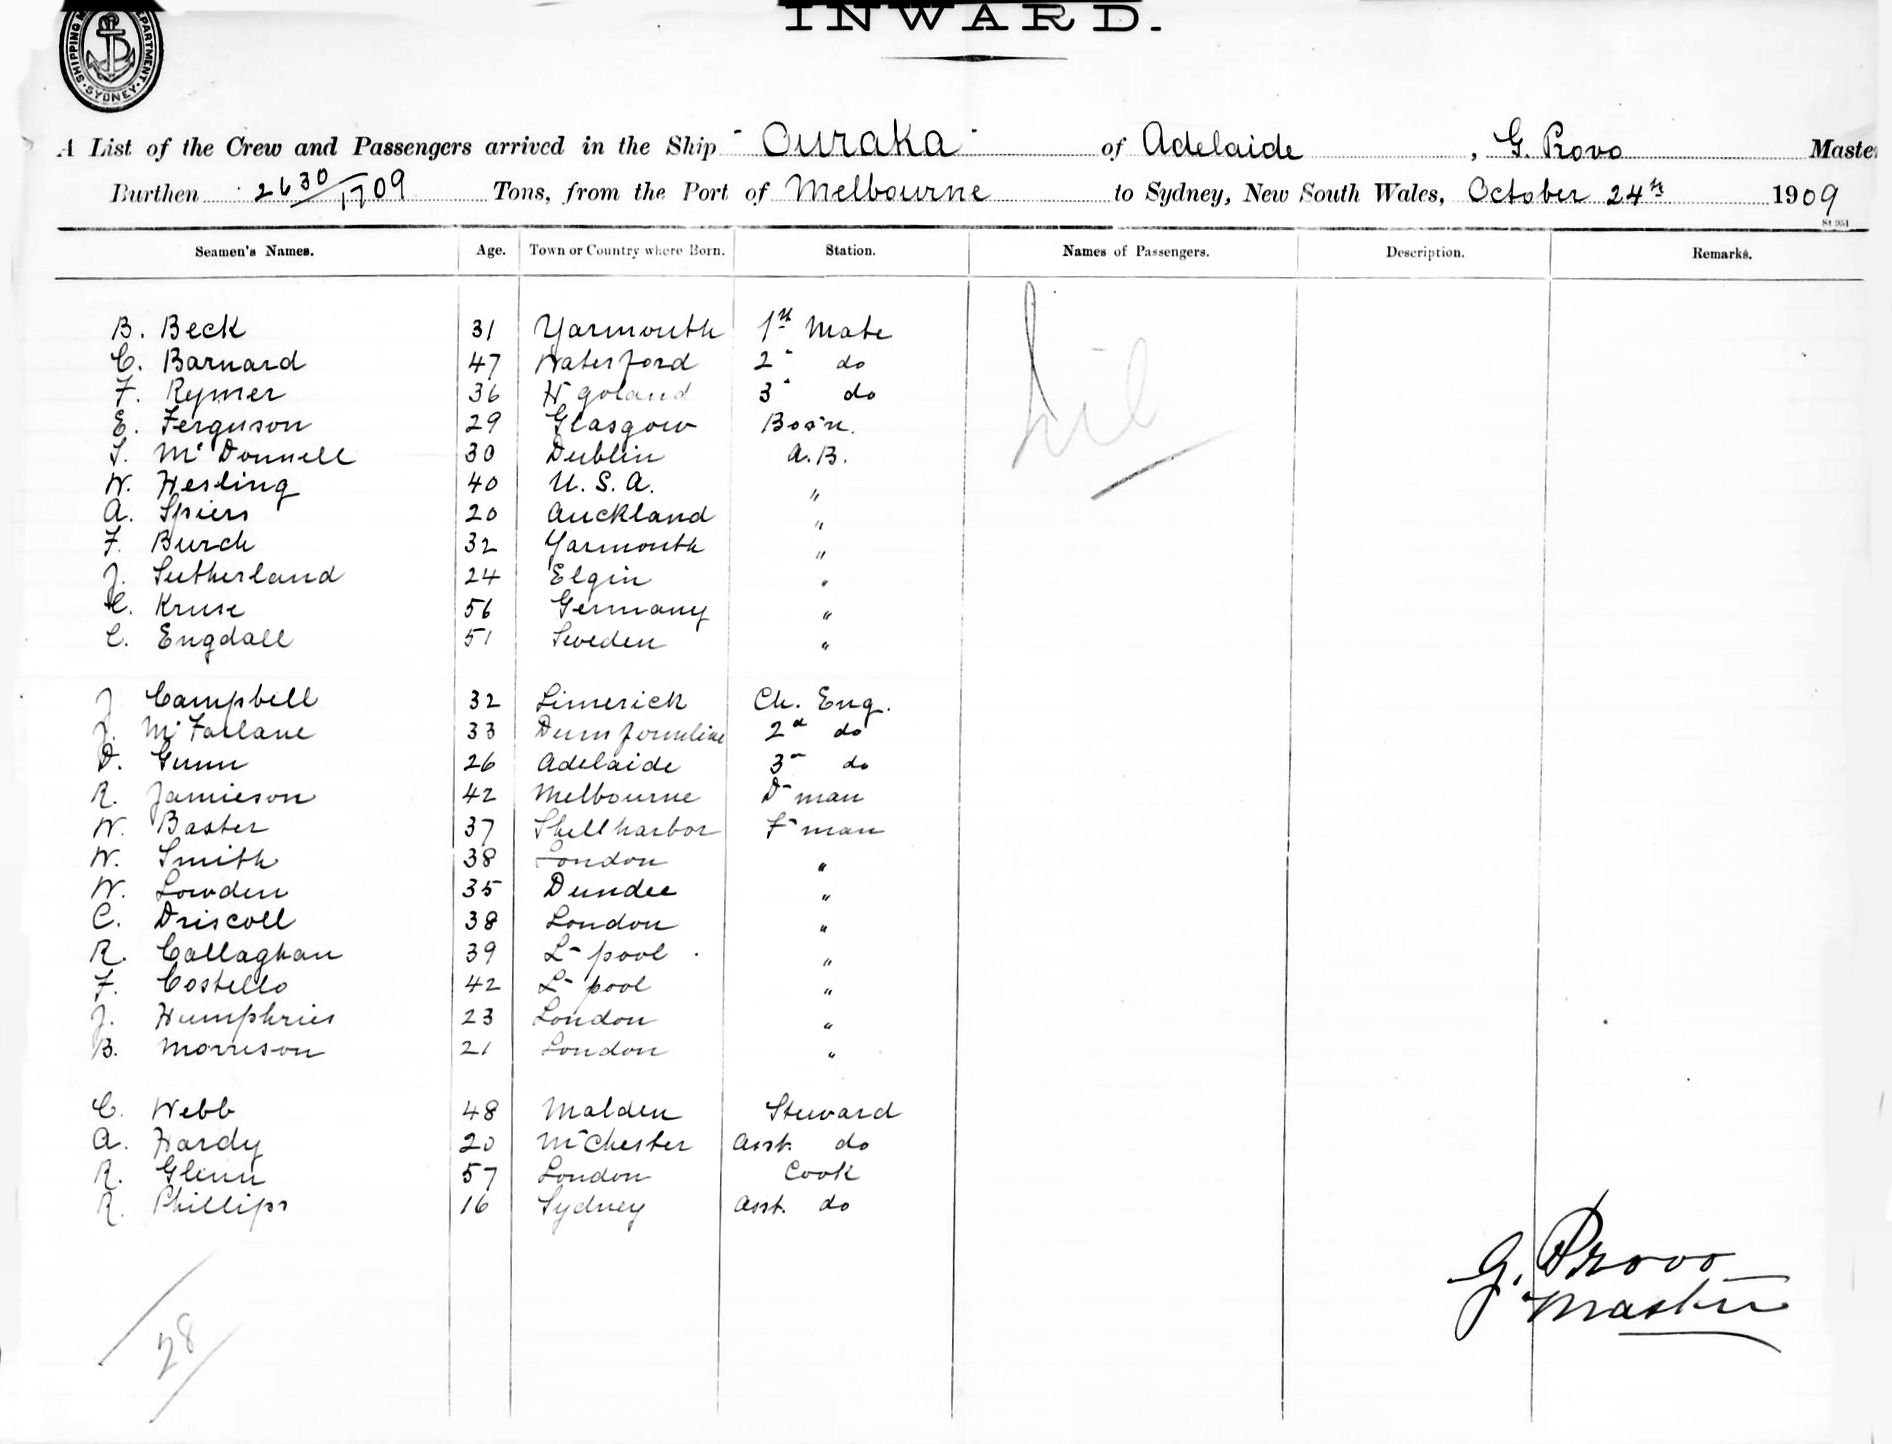 INWARD.
SHIPPING DEPARTMENT SYDNEY
A List of the Crew and Passengers arrived in the Ship "Ouraka" of Adelaide, G. Provo Master
Burthen 2630/1709 Tons, from the Port of Melbourne to Sydney, New South Wales, October 24th 1909
Seamen's Names. Age. Town or Country where Born. Station. Names of Passengers. Description. Remarks.
B. Beck 31 Yarmouth 1st Mate nil
C. Barnard 47 Waterford 2" do
F. Rymer 36 H'goland 3" do
E. Ferguson 29 Glasgow Bos'n.
T. McDonnell 30 Dublin A.B.
W. Hesling 40 U.S.A. "
A. Spiers 20 Auckland "
F. Burch 32 Yarmouth "
J. Sutherland 24 Elgin "
C. Kruse 56 Germany "
C. Engdall 51 Sweden "
J Campbell 32 Limerick Ch. Eng.
J. McFarlane 33 Dumfermline 2d do
D. Gunn 26 Adelaide 3" do
R. Jamieson 42 Melbourne D-man
W. Baster 37 Shellharbor F-man
W. Smith 38 London "
W. Lowden 35 Dundee "
C. Driscoll 38 London "
R. Callaghan 39 L-pool "
F. Costello 42 L-pool "
J. Humphries 23 London "
B. Morrison 21 London "
C. Webb 48 Malden Steward
A. Hardy 20 M-Chester Asst. do
R. Glenn 57 London Cook
R. Phillips 16 Sydney Asst. do
G. Provo
Master
28